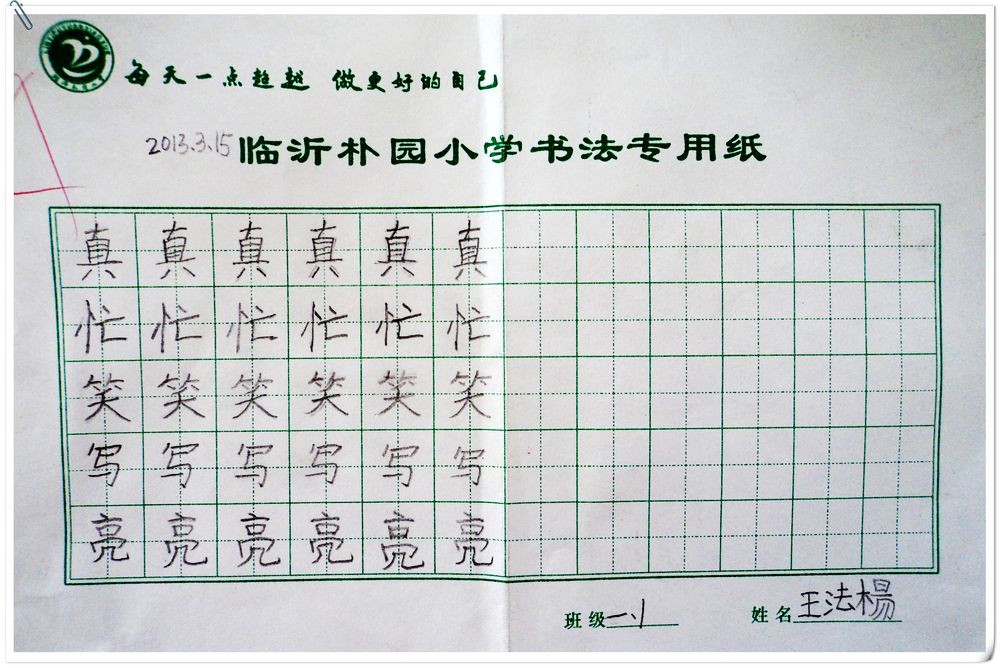 每天一点超越 做更好的自己
2013.3.15 临沂朴园小学书法专用纸
真 真 真 真 真 真
忙 忙 忙 忙 忙 忙
笑 笑 笑 笑 笑 笑
写 写 写 写 写 写
亮 亮 亮 亮 亮 亮
班级 一.1 姓名 王法楊